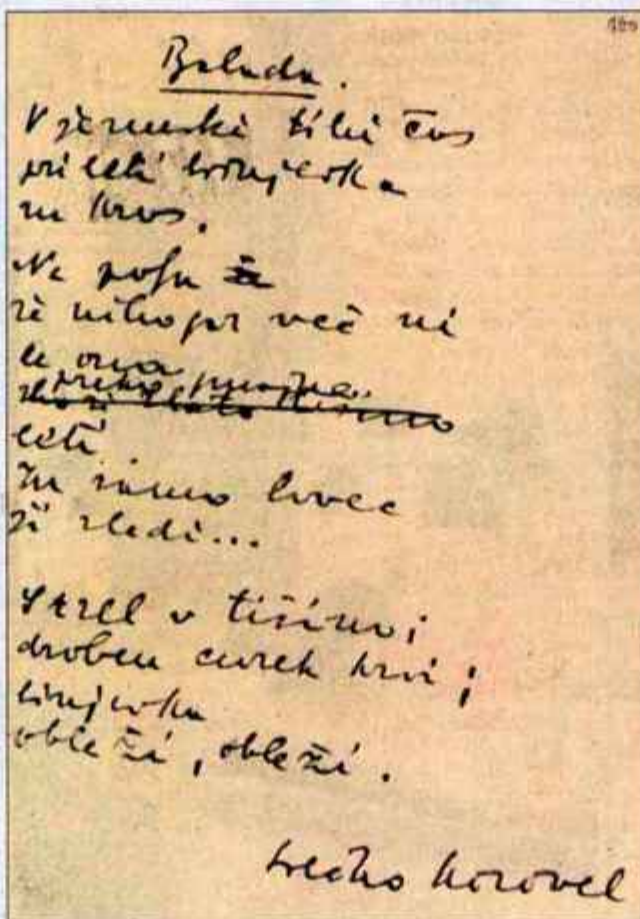 Balada.
V jesenski tihi čas
prileti brinjevka
na Kras.
Na polju ža
že nikogar več ni
le ona
preko gmajne
leti
In samo lovec
ji sledi...
Strel v tišino;
droben curek krvi;
brinjevka
obleži, obleži.
Srečko Kosovel